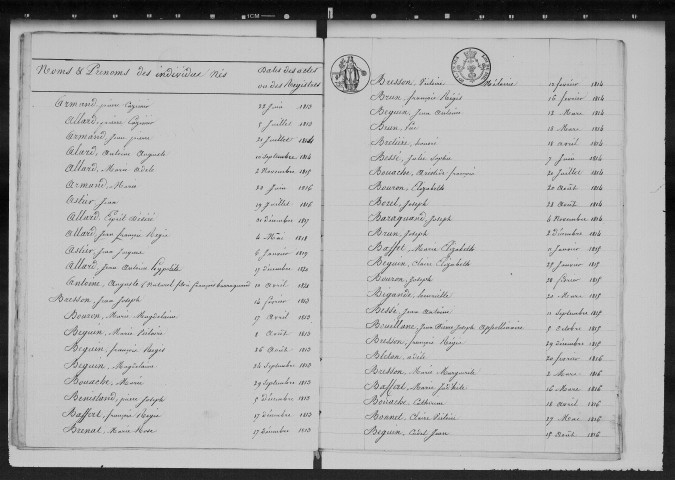 Noms & Prenoms des individus Nés
Dates des actes
ou des Registres
Armand, pierre Casimir 22 Juin 1813
Allard, pierre Casimir 5 Juillet 1813
Armand, Jean pierre 21 Juillet 1814
Alard, Antoine Auguste 10 Septembre 1814
Allard, Marie Adele 2 Novembre 1815
Armand, Marie 20 Juin 1816
Astier, Jean 19 Juillet 1816
Allard, Cyril Désiré 31 Décembre 1817
Allard, Jean François Régis 4 Mai 1819
Astier, Jean Jacques 6 Janvier 1819
Allard, Jean Antoine hypolite 17 Décembre 1820
Antoine, Auguste 10 avril 1821
Bresson, Jean Joseph 14 février 1813
Bouron, Marie Magdelaine 17 Avril 1813
Beguin, Marie Victoire 8 Août 1813
Beguin, françois Régis 26 Août 1813
Beguin, Magdelaine 24 Septembre 1813
Bouache, Marie 29 Septembre 1813
Benistand, pierre Joseph 5 Décembre 1813
Baffert, françois Régis 17 Décembre 1813
Brenat, Marie Rose 17 Décembre 1813
1CM
Bresson, Victoire 12 février 1814
Brun, françois Régis 16 février 1814
Beguin, Jean Antoine 12 Mars 1814
Brun, 18 Mars 1814
18 avril 1814
Bessé, Julie Sophie 7 Juin 1814
Bouache, françois 21 Juillet 1814
Bouron, Elizabeth 20 Août 1814
Borel, Joseph 28 Août 1814
Baraquand, Joseph 4 Novembre 1814
Brun, Joseph 2 Décembre 1814
Baffet, Marie Elizabeth 11 Janvier 1815
Beguin, Claire Elizabeth 29 Janvier 1815
Bouron, Joseph 20 février 1815
20 Mars 1815
Bessé, Jean Antoine 11 Septembre 1815
Bouillane, Jean Pierre Joseph Appollinaire 5 Octobre 1815
Bresson, françois Régis 29 Décembre 1815
Adèle 20 février 1816
Bresson, Marie Marguerite 2 Mars 1816
Baffert, Marie 16 Mars 1816
Bouache, Catherine 18 avril 1816
Bonnet, Claire Victoire 27 Mai 1816
Beguin, Jean 15 Août 1816